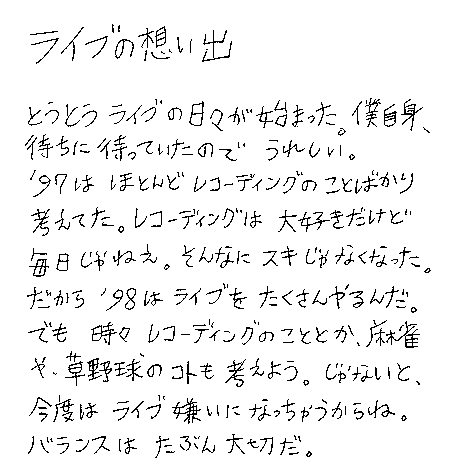 ライブの想い出
とうとう ライブの日々が始まった。僕自身、
待ちに待っていたので うれしい。
'97は ほとんど レコーディングのことばかり
考えてた。レコーディングは 大好きだけど
毎日じゃねえ。そんなに スキじゃなくなった。
だから '98は ライブを たくさんやるんだ。
でも 時々 レコーディングのこととか、麻雀
や、草野球のコトも 考えよう。じゃないと、
今度は ライブ嫌いに なっちゃうからね。
バランスは たぶん 大切だ。